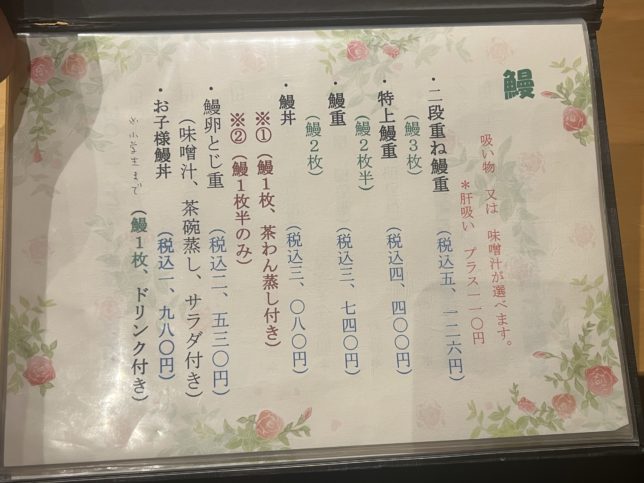 鰻
吸い物 又は 味噌汁が選べます。
＊肝吸い プラス一一〇円
・二段重ね鰻重 (税込五、一二六円)
(鰻３枚)
・特上鰻重 (税込四、四〇〇円)
(鰻２枚半)
・鰻重 (税込三、七四〇円)
(鰻２枚)
・鰻丼 (税込三、〇八〇円)
※① (鰻１枚、茶わん蒸し付き)
※② (鰻１枚半のみ)
・鰻卵とじ重 (税込二、五三〇円)
(味噌汁、茶碗蒸し、サラダ付き)
・お子様鰻丼 (税込一、九八〇円)
※小学生まで (鰻１枚、ドリンク付き)